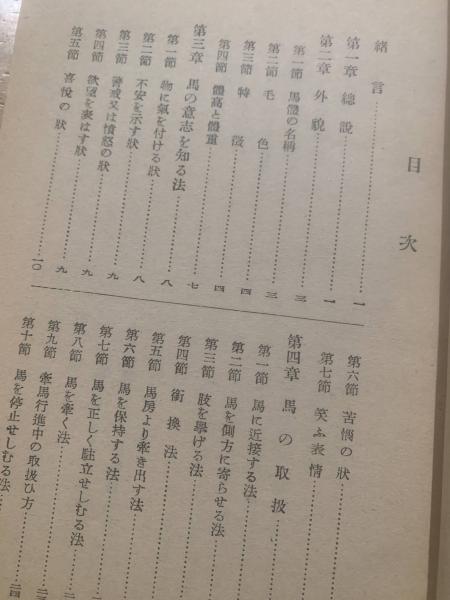 目次
緒言
第一章 總說 一
第二章 外貌 一
第一節 馬體の名稱 三
第二節 毛色 三
第三節 特徵 四
第四節 體高と體重 四
第三章 馬の意志を知る法 七
第一節 物に氣を付ける狀 八
第二節 不安を示す狀 八
第三節 警戒又は憤怒の狀 九
第四節 欲望を表はす狀 九
第五節 喜悅の狀 一〇
第六節 苦惱の狀
第七節 笑ふ表情
第四章 馬の取扱
第一節 馬に近接する法
第二節 馬を側方に寄らせる法
第三節 肢を擧げる法
第四節 銜換法
第五節 馬房より牽き出す法
第六節 馬を保持する法
第七節 馬を正しく駐立せしむる法
第八節 馬を牽く法
第九節 牽馬行進中の取扱ひ方
第十節 馬を停止せしむる法